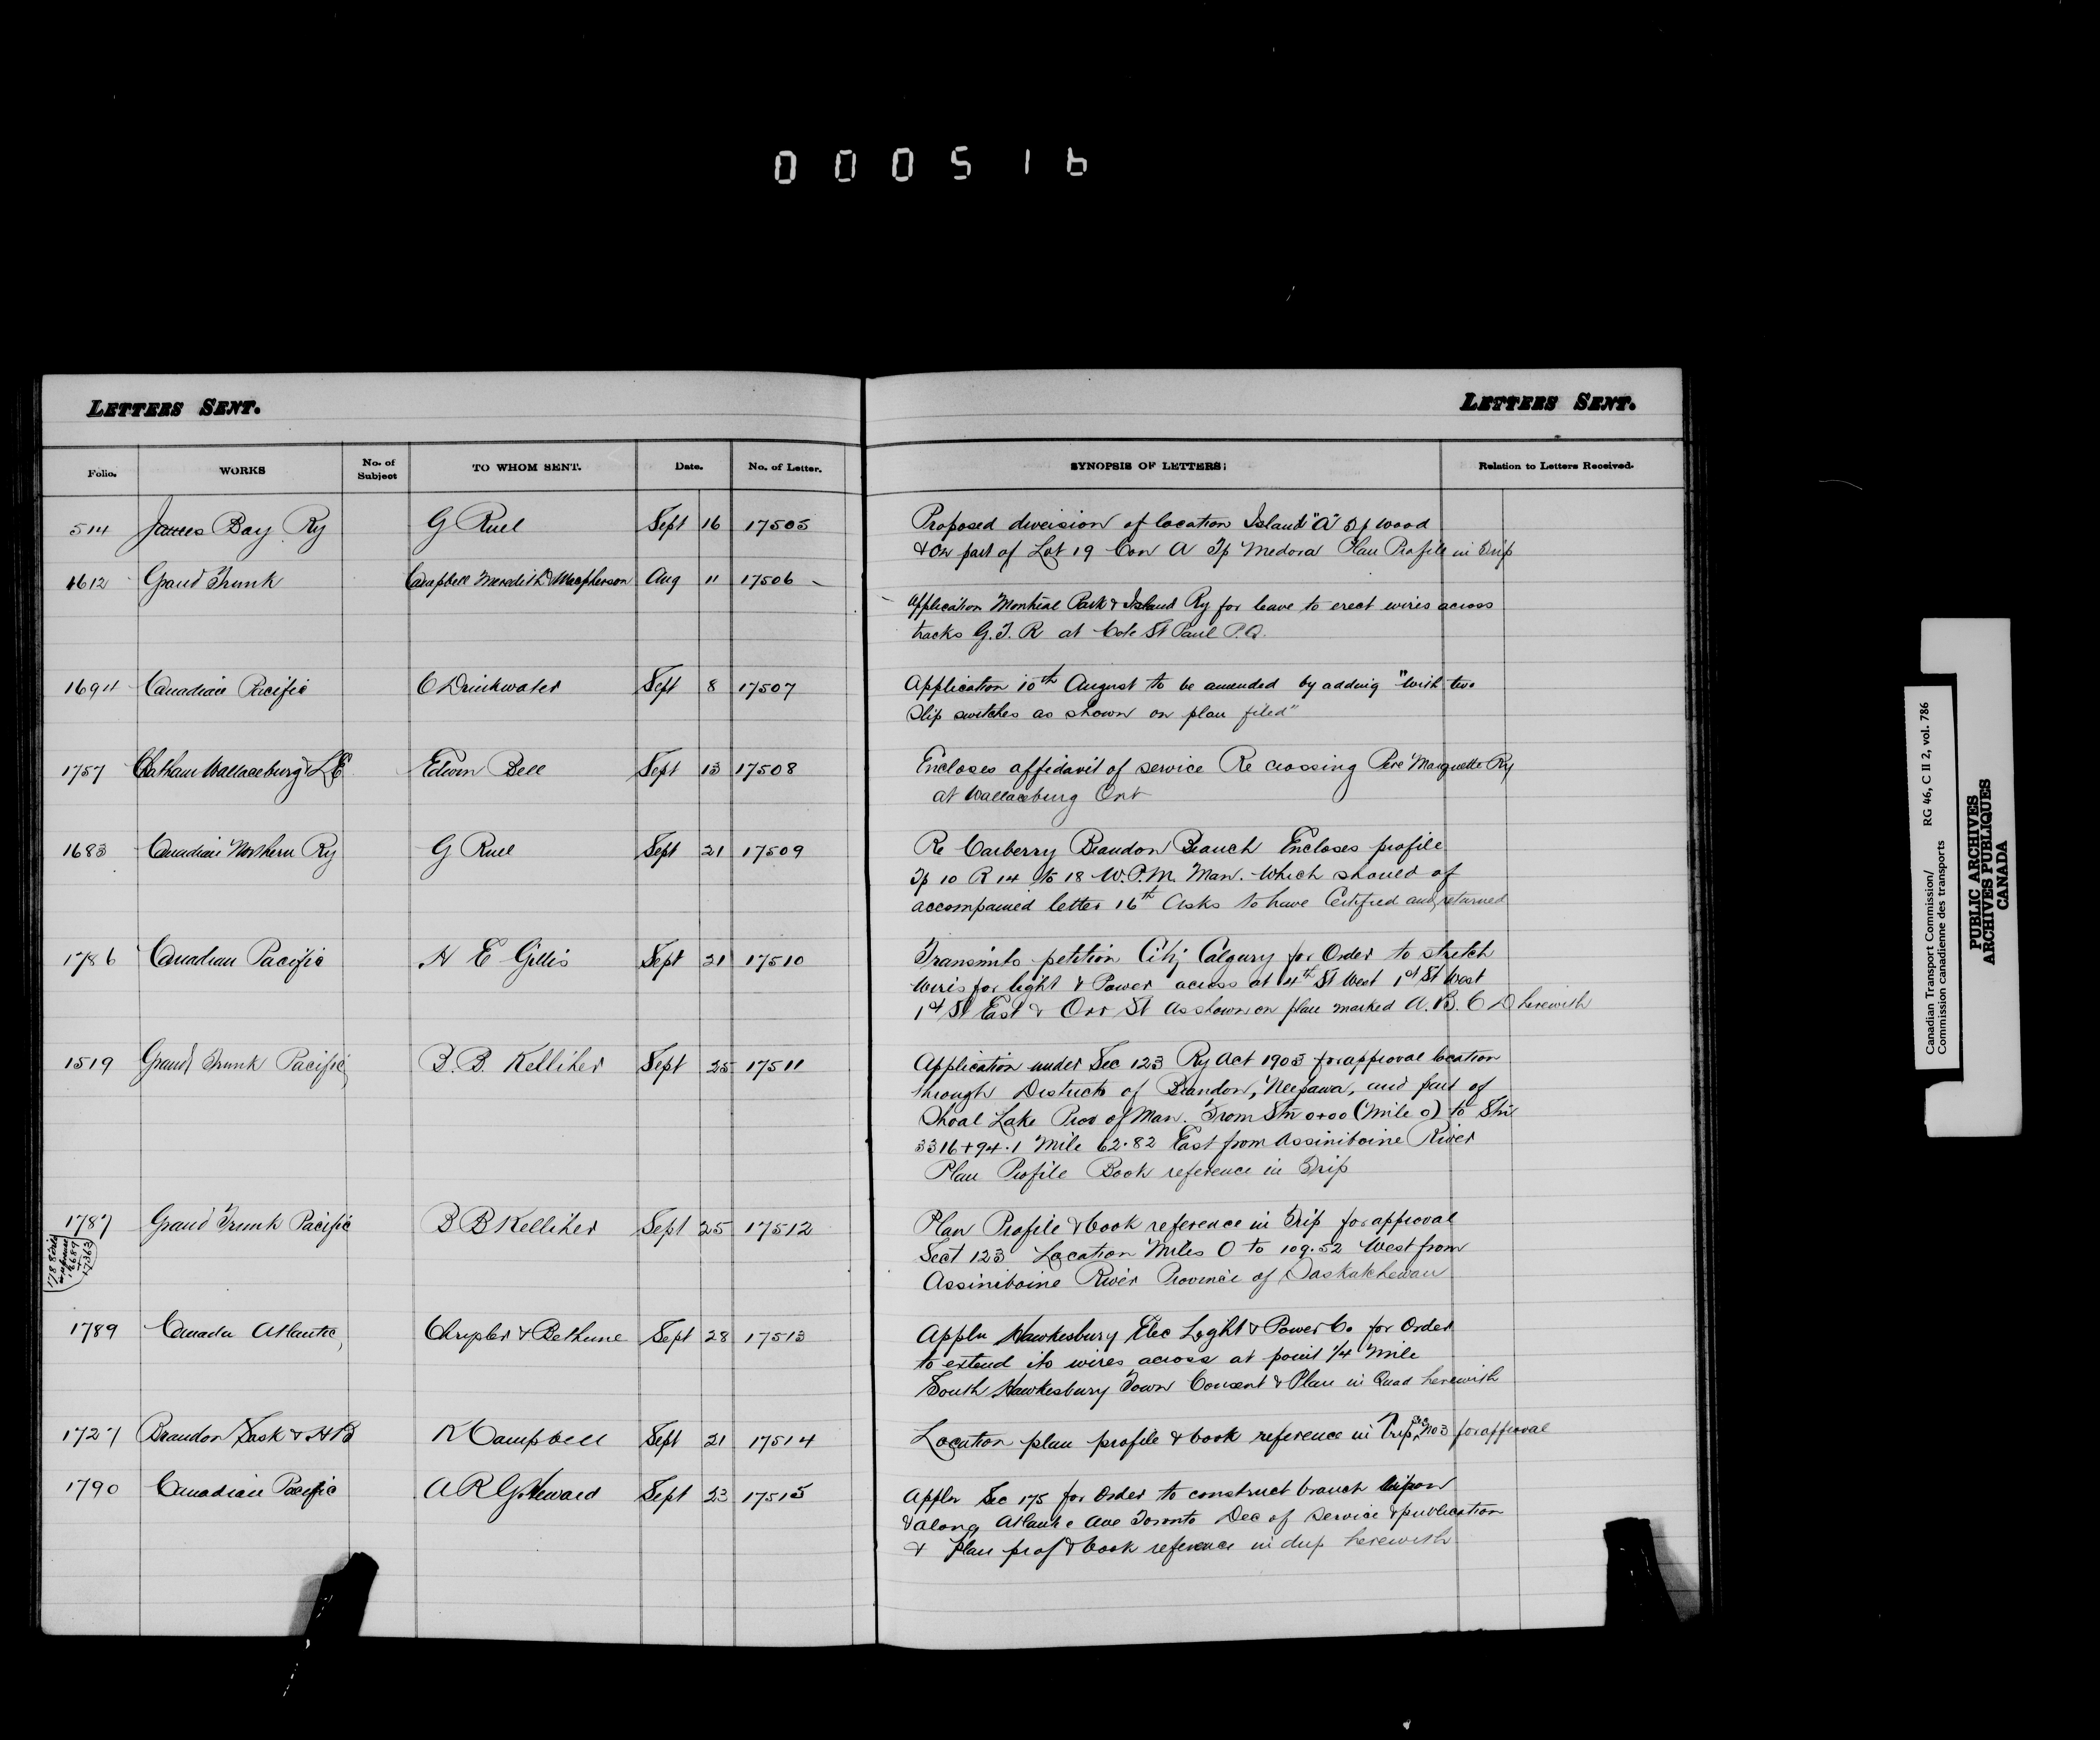 000516
LETTERS SENT.
LETTERS SENT.
Folio. WORKS No. of Subject TO WHOM SENT. Date. No. of Letter. SYNOPSIS OF LETTERS; Relation to Letters Received.
514 James Bay Ry G Ruel Sept 16 17505 Proposed diveision of location Island "A" Tp Wood
& On part of Lot 19 Con A Tp Medora Plan Profile in Trip
1612 Grand Trunk Campbell Meredith & Macpherson Aug 11 17506
Application Montreal Park & Island Ry for leave to erect wires across
tracks G.T.R at Cote St Paul P.Q.
1694 Canadian Pacific C Drinkwater Sept 8 17507 Application 10th August to be amended by adding "with two
slip switches as shown on plan filed"
1757 Chatham Wallaceburg & L E Edwin Bell Sept 13 17508 Encloses affidavit of service Re crossing Pere Marquette Ry
at Wallaceburg Ont
1683 Canadian Northern Ry G Ruel Sept 21 17509 Re Carberry Brandon Branch Encloses profile
Tp 10 R 14 to 18 W.P.M. Man. Which should of
accompanied letter 16th Asks to have Certified and returned
1786 Canadian Pacific H E Gillis Sept 21 17510 Transmits petition City Calgary for Order to stretch
wires for light & Power across at 4th St West 1st St West
1st St East & Orr St as shown on plan marked A. B. C D herewith
1519 Grand Trunk Pacific B. B. Kelliher Sept 25 17511 Application under Sec 123 Ry Act 1903 for approval location
through Districts of Brandon, Neepawa, and part of
Shoal Lake Prov of Man. From Stn 0+00 (Mile 0) to Stn
3316+94.1 Mile 62.82 East from Assiniboine River
Plan Profile Book reference in Trip
1787 Grand Trunk Pacific B B Kelliher Sept 25 17512 Plan Profile & book reference in Trip for approval
Sect 123 Location Miles 0 to 109.52 West from
Assiniboine River Province of Saskatchewan
1789 Canada Atlantic, Chrysler & Bethune Sept 28 17513 Appln Hawkesbury Elec Light & Power Co for Order
to extend its wires across at point 1/4 Mile
South Hawkesbury Town Consent & Plan in Quad herewith
1727 Brandon Sask & H B R Campbell Sept 21 17514 Location plan profile & book reference in Trip Sec No 3 for approval
1790 Canadian Pacific A R G Heward Sept 23 17515 Appln Sec 175 for Order to construct branch upon
& along Atlantic Ave Toronto Dec of service & publication
& plan prof & book reference in dup herewith
Canadian Transport Commission/ RG 46, C II 2, vol. 786
Commission canadienne des transports
PUBLIC ARCHIVES
ARCHIVES PUBLIQUES
CANADA